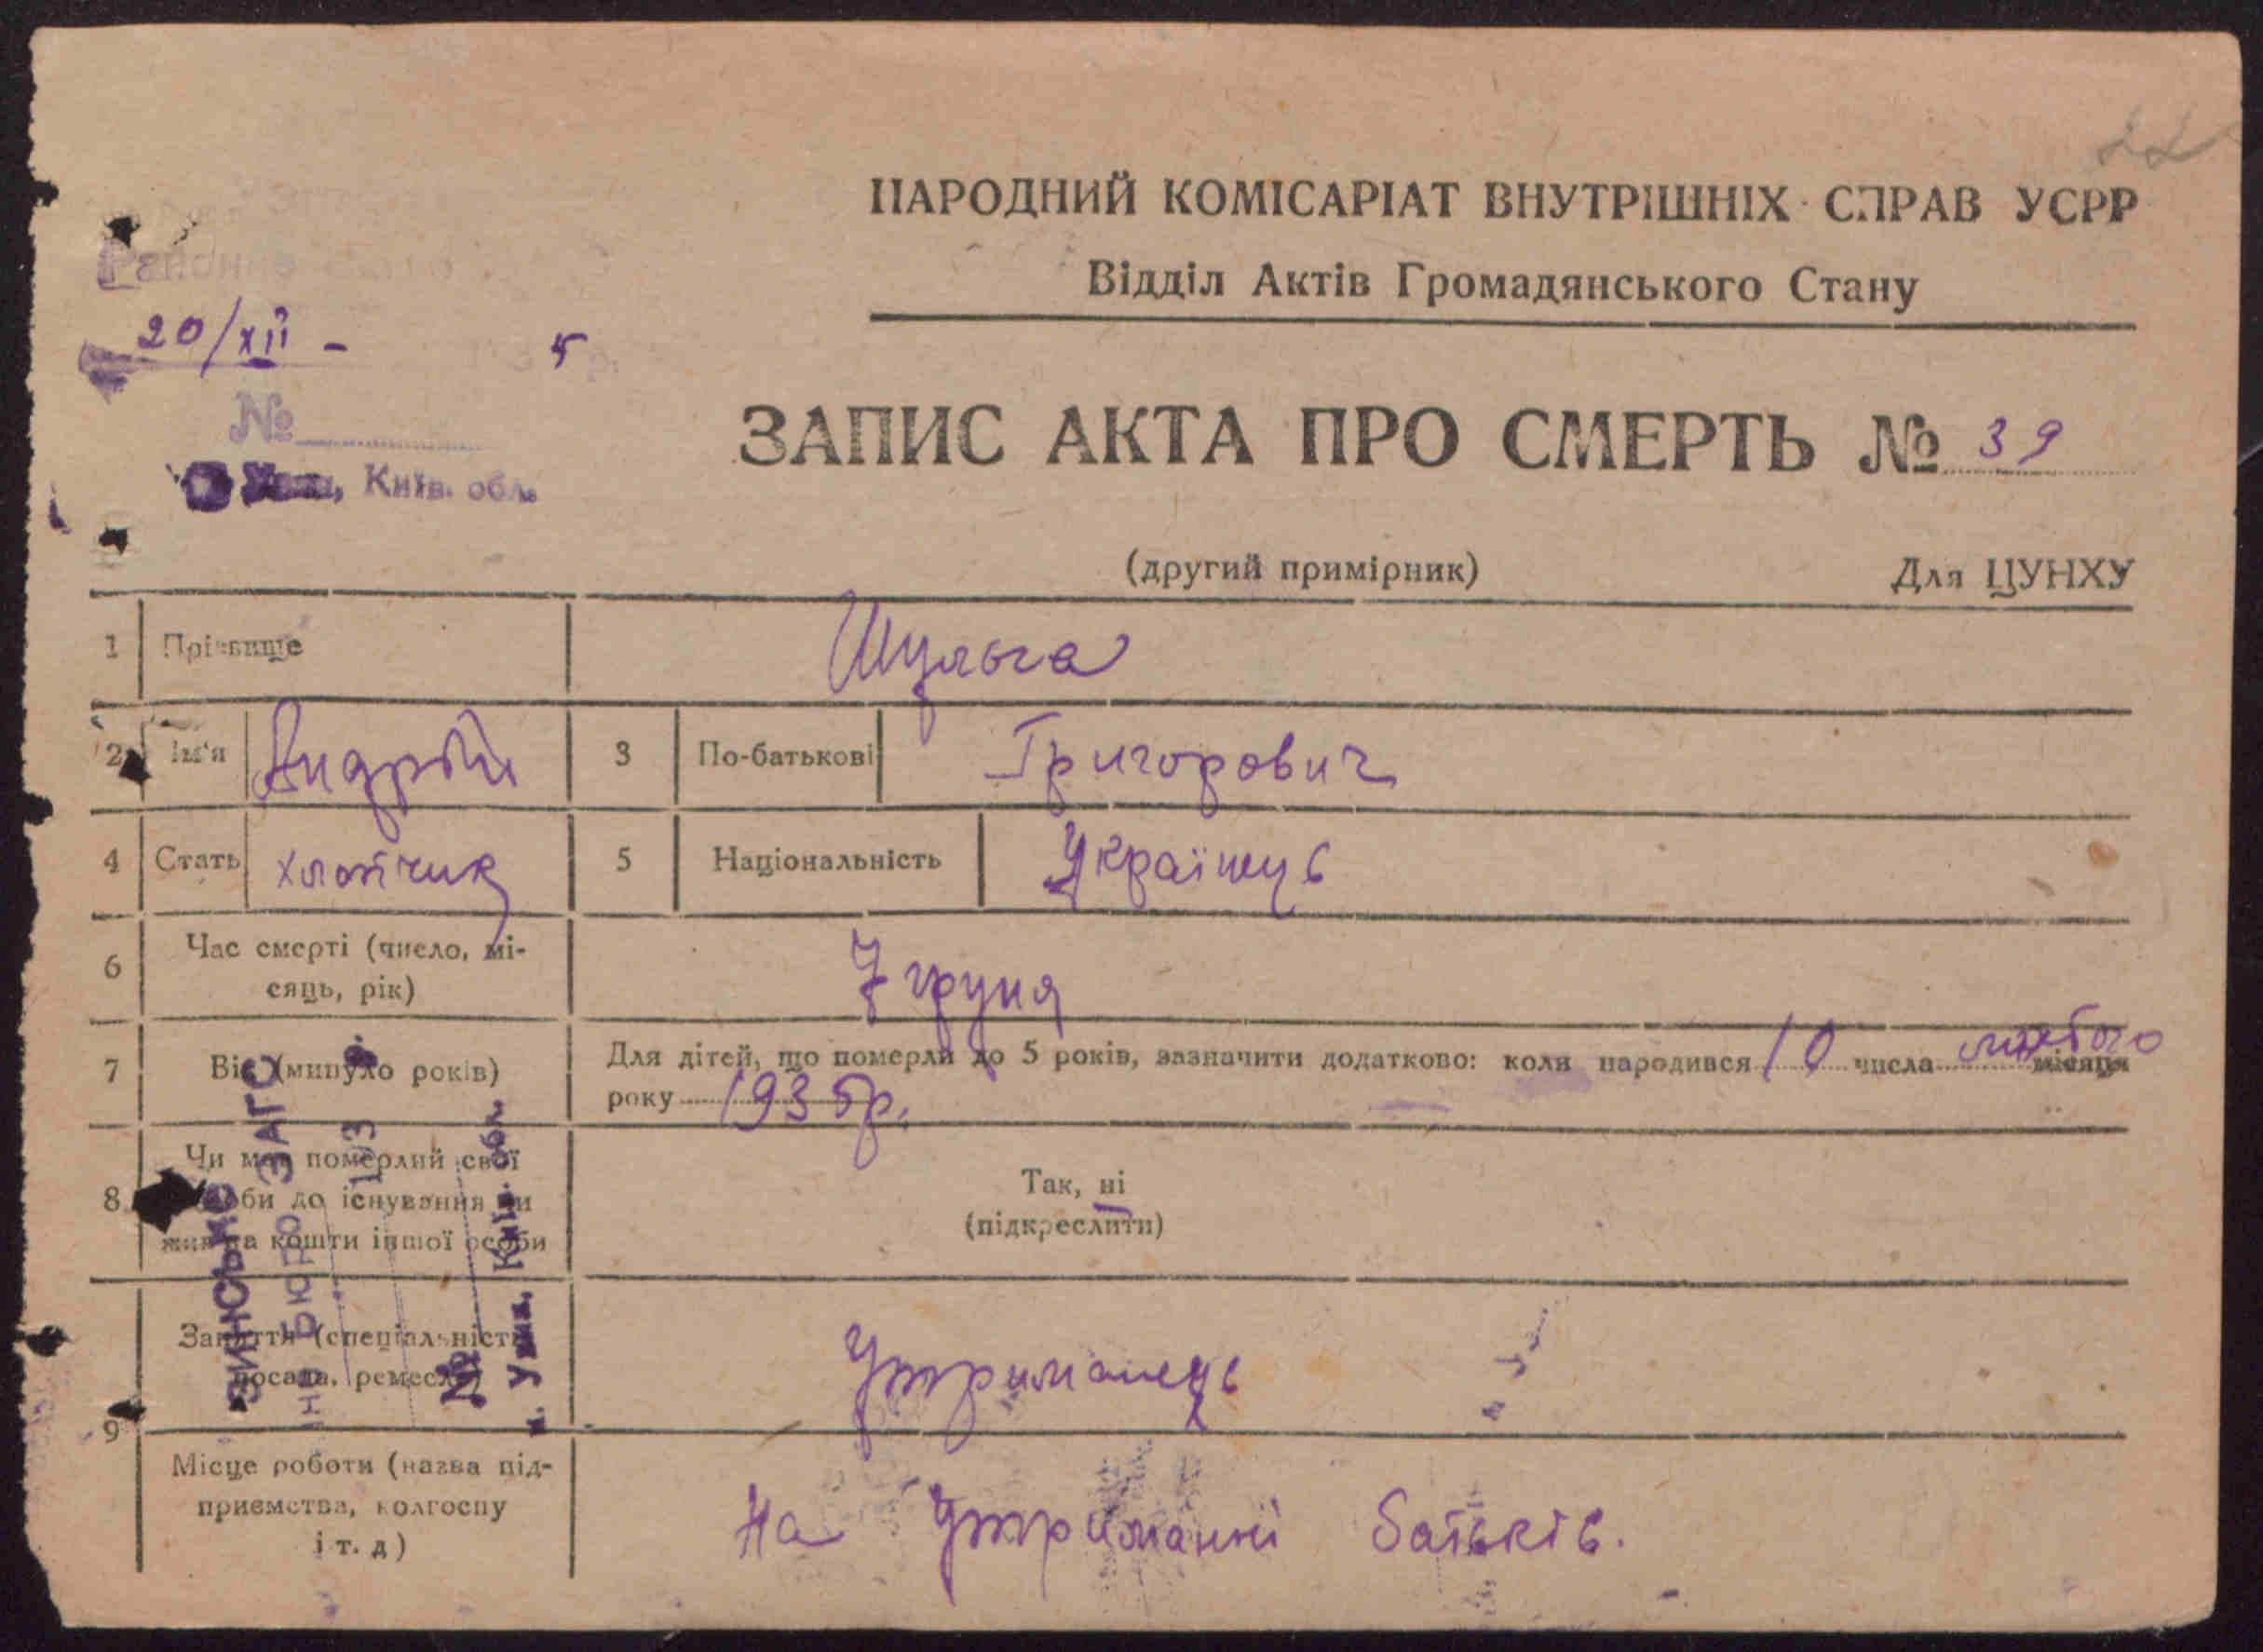 НАРОДНИЙ КОМІСАРІАТ ВНУТРІШНІХ СПРАВ УСРР
Відділ Актів Громадянського Стану
20/XII - 5
№
Київ. обл.
ЗАПИС АКТА ПРО СМЕРТЬ № 39
(другий примірник) Для ЦУНХУ
1 Прізвище Шульга
2 Ім'я Андрій 3 По-батькові Григорович
4 Стать хлопчик 5 Національність Українець
6 Час смерті (число, мі-
сяць, рік) 7 групя
7 Вік (минуло років) Для дітей, що померли до 5 років, зазначити додатково: коли народився 10 числа лютого місяця
року 1935р.
8 Чи мав померлий свої
засоби до існування чи
жив на кошти іншої особи
Так, ні
(підкреслити)
9 Заняття (спеціальність
посада, ремесло)
Утриманець
Місце роботи (назва під-
приємства, колгоспу
і т. д)
На утриманні батьків.
ЗИНСЬКЕ ЗАГС
БЮРО
193 р.
№
м. Умань, Київ. обл.